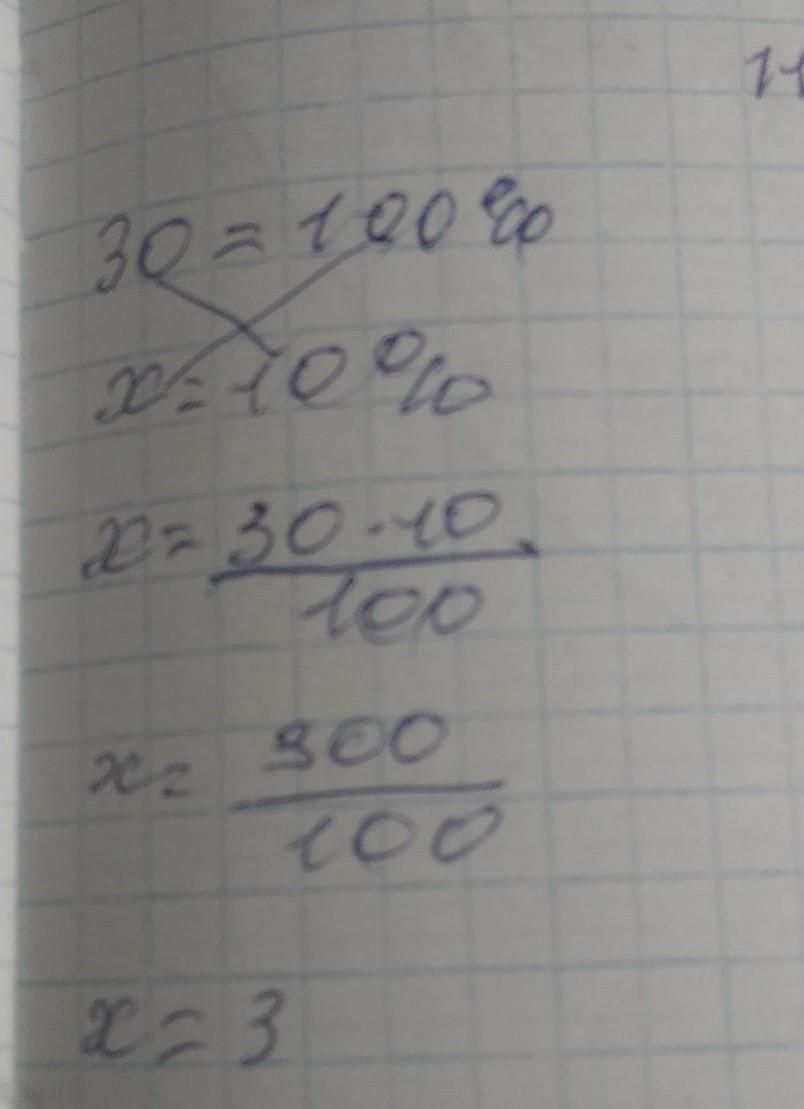 30 = 100%
x = 10%
x = 30 · 10 / 100
x = 300 / 100
x = 3